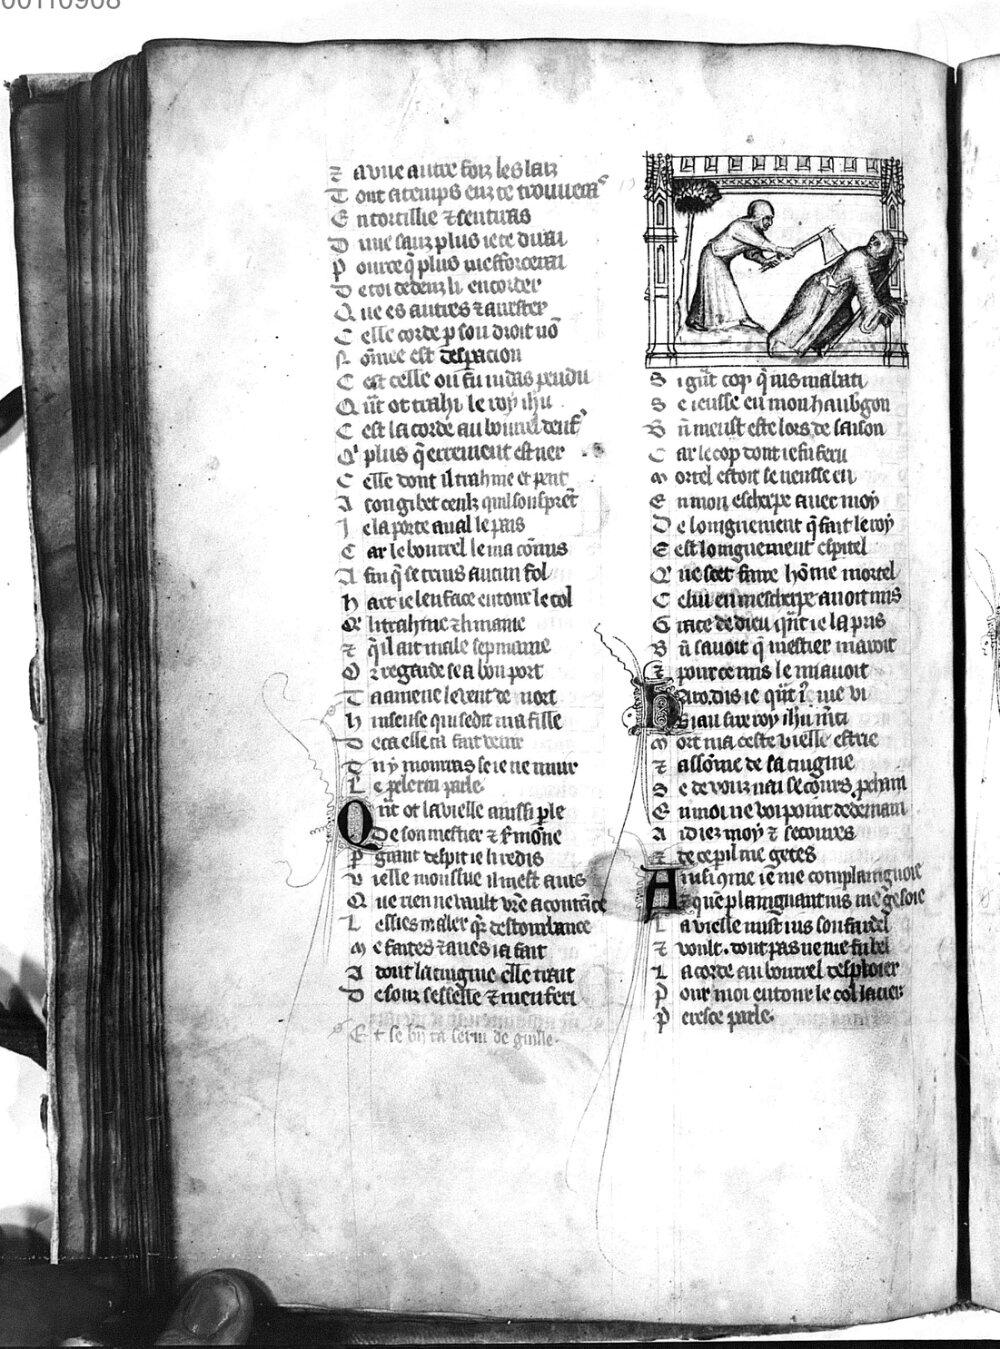 00110908
⁊ a vne autre foiz les laiz
Tout a temps enz te trouueras
Entortillie ⁊ sentiras
D vne sanz plus ie te dirai
Pource q̃ plus
De toi dedenz li encorder
Que es autres ⁊ arrester
Celle corde p son droit nõ
Nõmee est desperacion
Cest celle ou fu iudas pendu
Q̃nt ot trahi le roy ihũ
Cest la corde au bourrel
Q' plus q̃ errement
Celle dont il trahine et pent
A son gibet ceulz quil sousprẽt
Ie la porte aual le pais
Car le bourrel le ma cõmis
Afin q̃ se truis aucun fol
Hart ie len face entour le col
Q' li trahine ⁊ li maine
⁊ q̃l ait male sepmaine
Or regarde se a bon port
Ta amene le vent de nort
Huiseuse qui se dit ma fille
Deca elle ta fait venir
D'ny mourras se ie ne muir
Le pelerin parle.
Q̃nt ot la vielle ainssi ple
De son mestier ⁊ sermõne
Prant despit ie li redis
Vielle moussue il mest auis
Que rien ne vault vr̃e acontãce
Lessies maler q̃r destourbance
Me faites ⁊ aues ia fait
Adont la cuignie elle trait
Desouz sesselle ⁊ men feri
Et se bñ ta serui de guille.
Si g̃nt cop q̃ ius mabati
Se ieusse eu mon haubgon
Bñ meust este lors de saison
Car le cop dont ie fu feru
Mortel estoit se neusse eu
En mon escherpe auec moy
De loinguement q̃ fait le roy
Cest loinguement espitel
Que scet faire hõme mortel
Celui en mescherpe auoit mis
Grace de dieu q̃nt ie la pris
Bñ sauoit q̃ mestier mauoit
⁊ pour ce mis le mi auoit
Haro. dis ie q̃nt ĩ me vi
Biau sire roy ihũ mci
Mort ma ceste vielle estrie
⁊ assõmee de sa cuignie
Se de vouz nai secours. pchain
En moi ne voi point de demain
Aidiez moy ⁊ secoures
⁊ de ce pil me getes
Ainsi q̃me ie me complaingnoie
⁊ que plaingnant ius me gesoie
La vielle mist ius son fardel
⁊ voult. dont pas ne me fu bel
La corde au bourrel desploier
Pour moi entour le col lacier
Peresce parle.